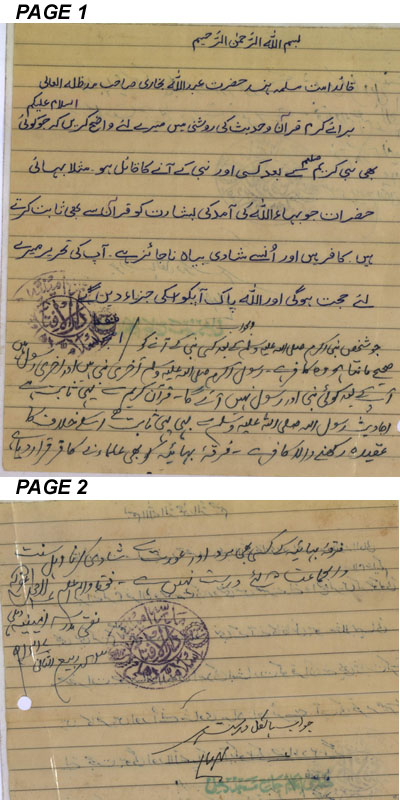 PAGE 1
بسم اللہ الرحمٰن الرحیم
قائد امت مسلمہ ہند حضرت عبداللہ بخاری صاحب مدظلہ العالی
اسلام علیکم
برائے کرم قرآن و حدیث کی روشنی میں میرے لئے واضح کریں کہ جو کوئی
بھی نبی کریم صلعم کے بعد کسی اور نبی کے آنے کا قائل ہو۔ مثلا بہائی
حضرات جو بہاء اللہ کی آمد کی بشارت کو قرآن سے بھی ثابت کرتے
ہیں۔ کافر ہیں اور اُنسے شادی بیاہ ناجائز ہے۔ آپ کی تحریر میرے
لئے حجت ہوگی اور اللہ پاک آپکو اسکی جزاء دیں گے
جو شخص نبی اکرم صلی اللہ علیہ وسلم کے بعد کسی نبی کے آنے کو
صحیح مانتا ہو وہ کافر ہے۔ رسول اکرم صلی اللہ علیہ وسلم آخری نبی ہیں اور آخری رسول ہیں
آپ کے بعد کوئی نبی اور رسول نہیں آئے گا۔ قرآن کریم سے یہی ثابت ہے
احادیث رسول اللہ صلی اللہ علیہ وسلم سے یہی ثابت ہے اسکے خلاف کا
عقیدہ رکھنے والا کافر ہے۔ فرقہ بہائیہ کو بھی علماء نے کافر قرار دیا ہے
PAGE 2
فرقہ بہائیہ کے کسی بھی مرد اور عورت سے شادی کرنا اہل سنت
والجماعت کے لئے درست نہیں ہے۔ فقط واللہ اعلم
جواب بالکل درست ہے